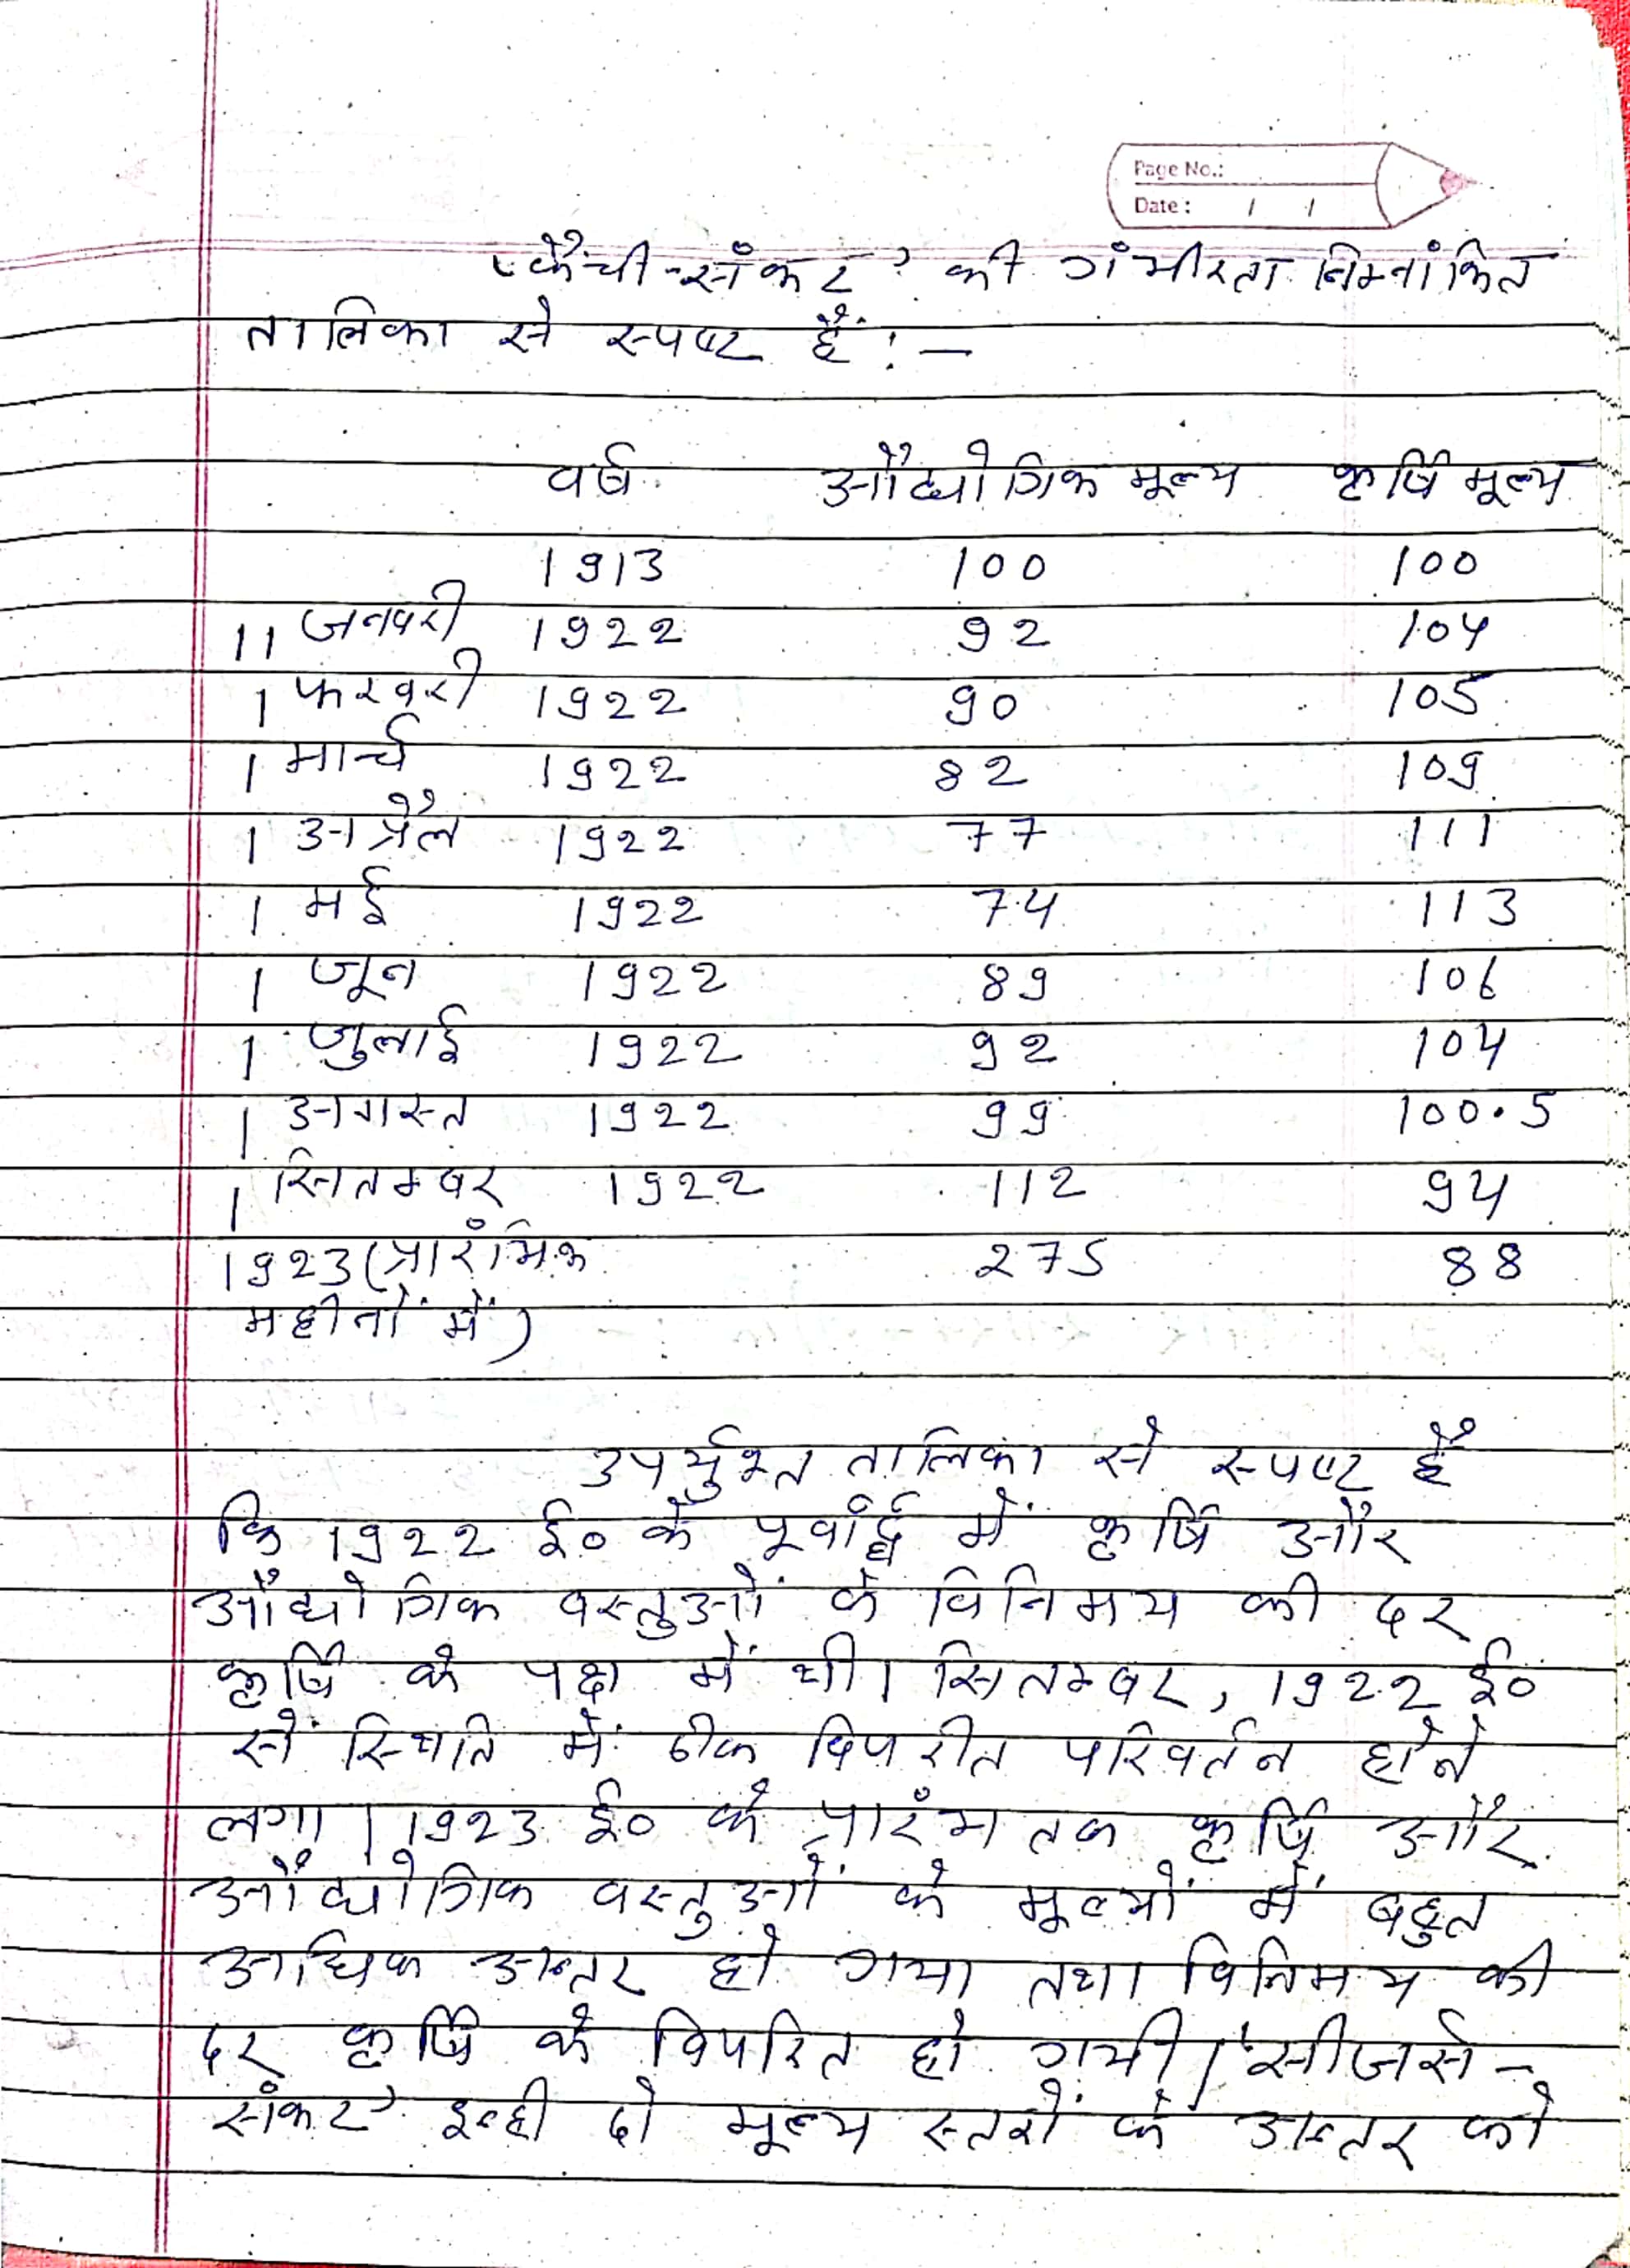 Page No.:
Date : / /
'कैंची-संकट' की गंभीरता निम्नांकित
तालिका से स्पष्ट हैं :-
वर्ष औद्योगिक मूल्य कृषि मूल्य
1913 100 100
11 जनवरी 1922 92 104
1 फरवरी 1922 90 105
1 मार्च 1922 82 109
1 अप्रैल 1922 77 111
1 मई 1922 74 113
1 जून 1922 89 106
1 जुलाई 1922 92 104
1 अगस्त 1922 99 100.5
1 सितम्बर 1922 112 94
1923 (प्रारंभिक 275 88
महीनों में)
उपर्युक्त तालिका से स्पष्ट है
कि 1922 ई० के पूर्वार्द्ध में कृषि और
औद्योगिक वस्तुओं के विनिमय की दर
कृषि के पक्ष में थी। सितम्बर, 1922 ई०
से स्थिति में ठीक विपरीत परिवर्तन होने
लगा। 1923 ई० के प्रारंभ तक कृषि और
औद्योगिक वस्तुओं के मूल्यों में बहुत
अधिक अन्तर हो गया तथा विनिमय की
दर कृषि के विपरित हो गयी। 'सीजर्स-
संकट' इन्ही दो मूल्य स्तरों के अन्तर को